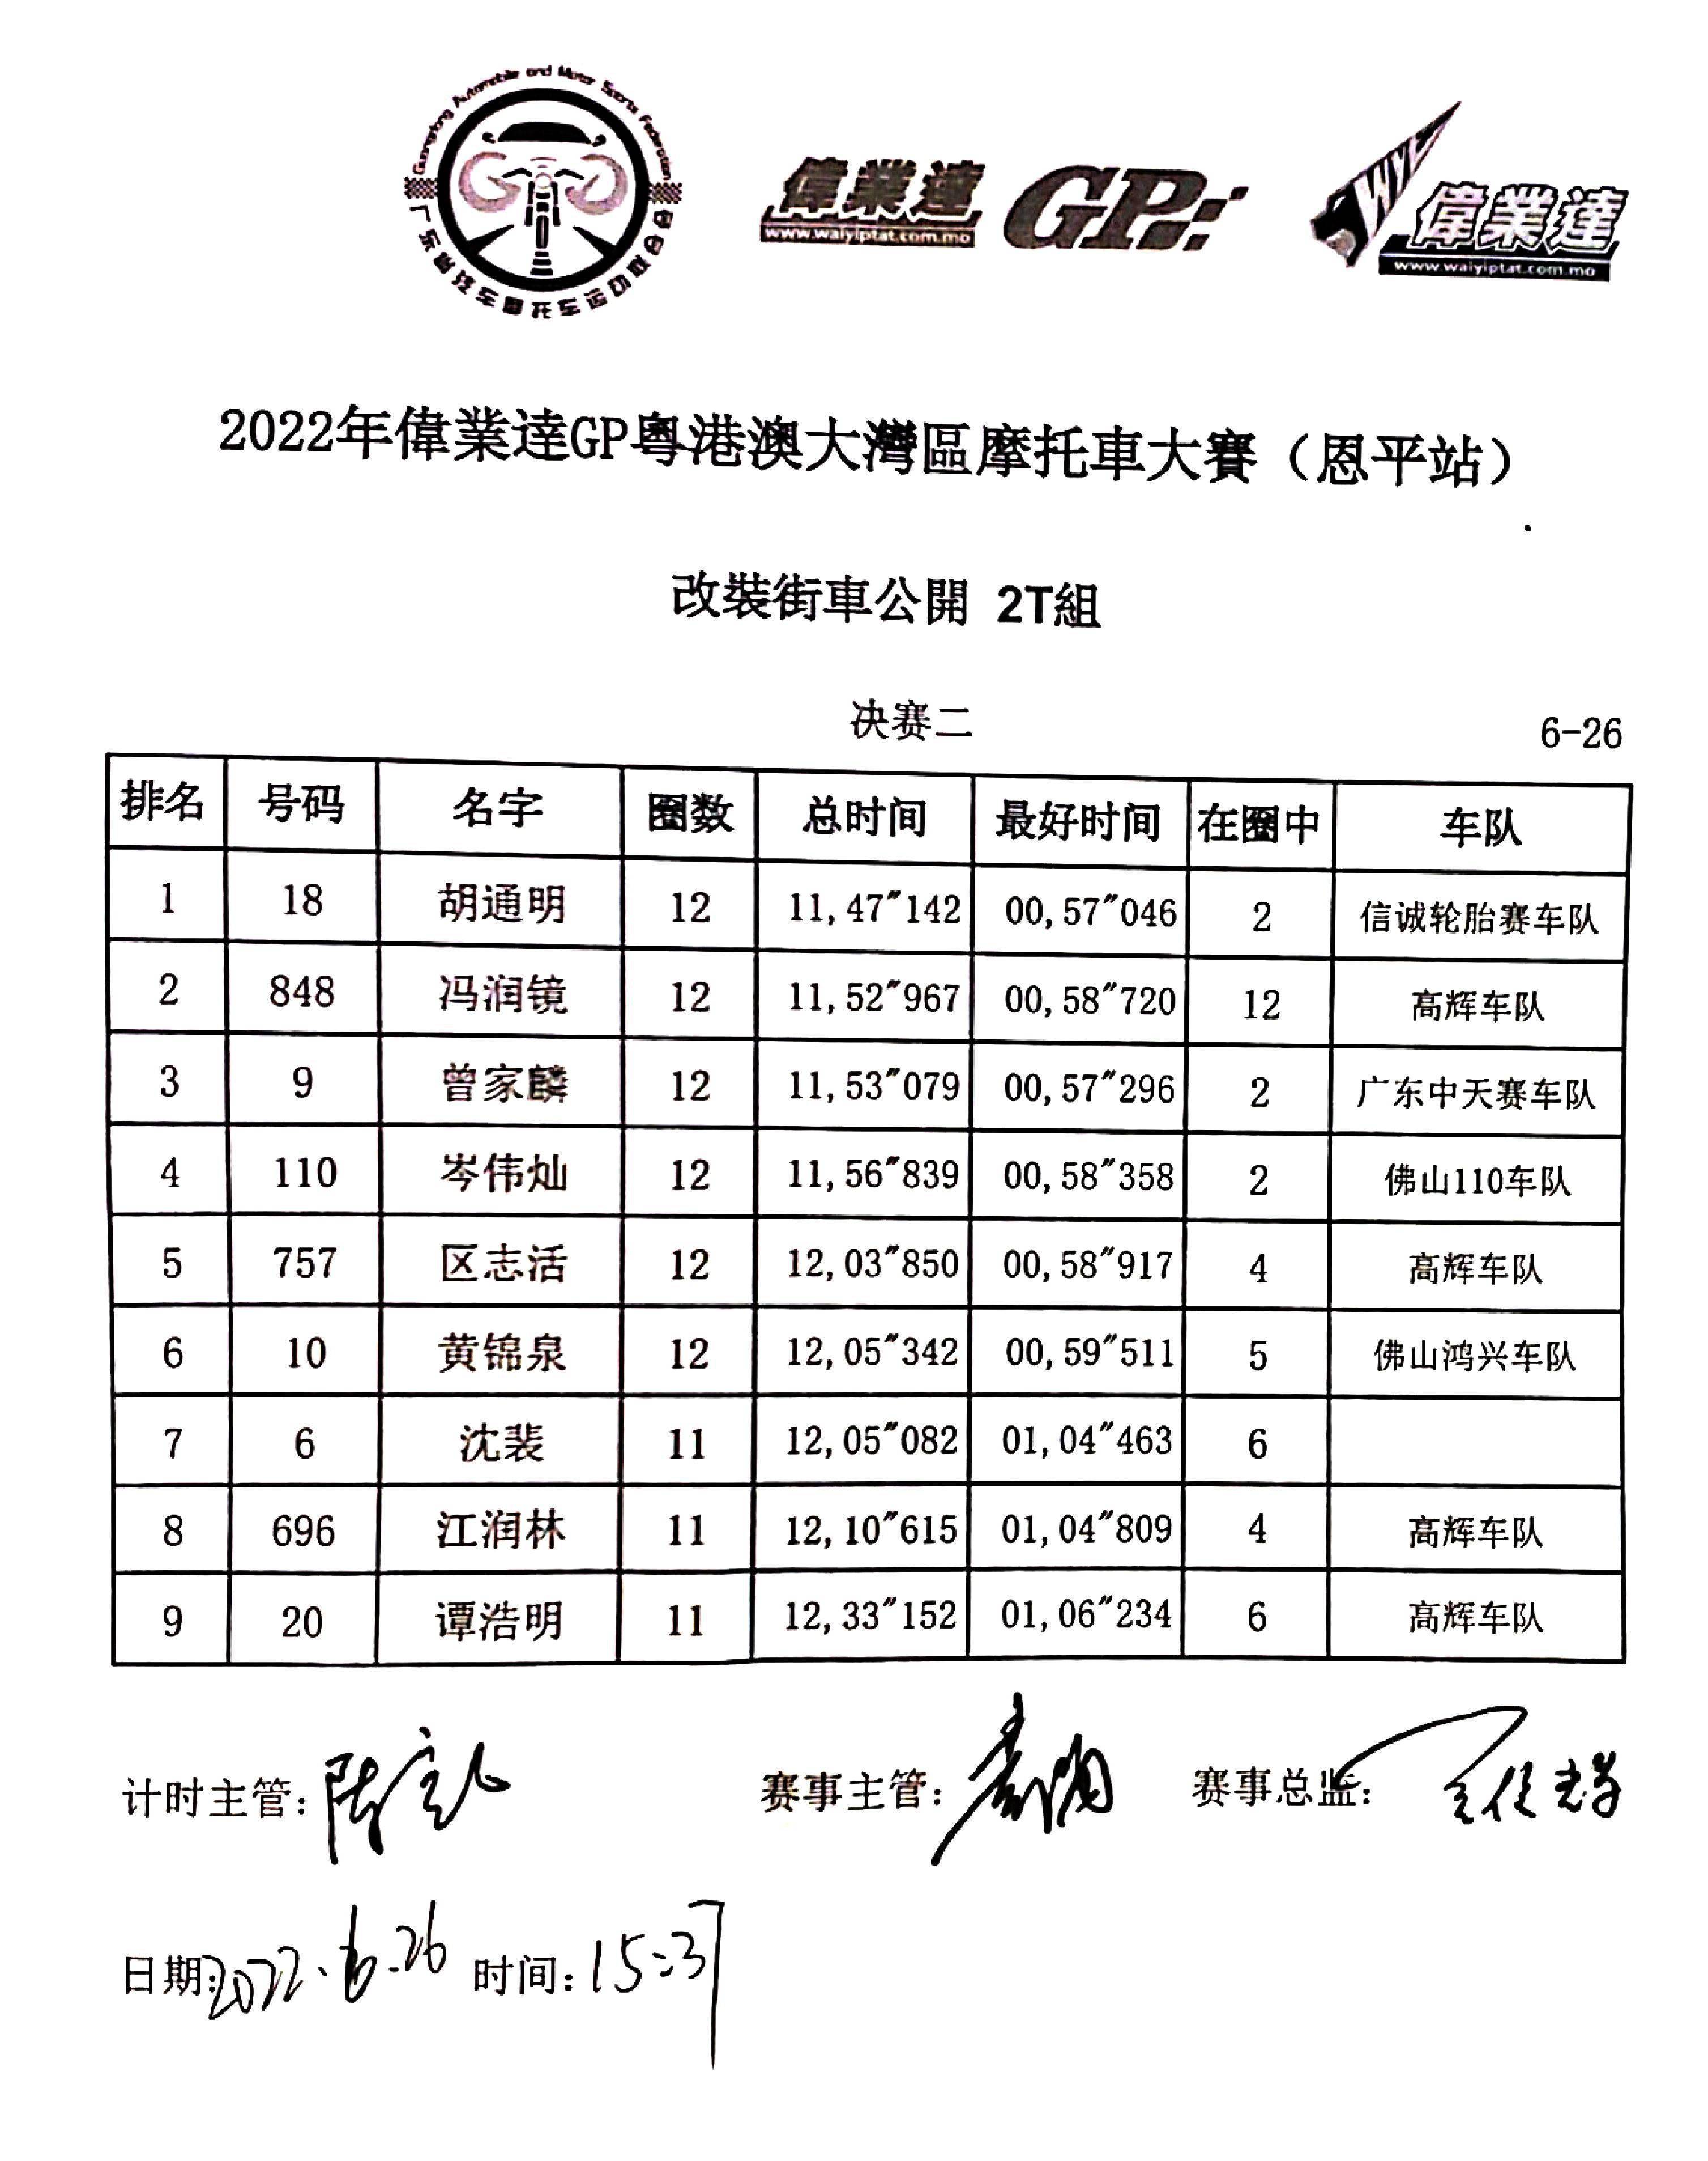 Guangdong Automobile and Motor Sports Federation
广东省汽车摩托车运动联合会
偉業達
www.waiyiptat.com.mo
GP
WYT
偉業達
www.waiyiptat.com.mo
2022年偉業達GP粵港澳大灣區摩托車大賽（恩平站）
改裝街車公開 2T組
决赛二 6-26
排名 号码 名字 圈数 总时间 最好时间 在圈中 车队
1 18 胡通明 12 11,47″142 00,57″046 2 信诚轮胎赛车队
2 848 冯润镜 12 11,52″967 00,58″720 12 高辉车队
3 9 曾家麟 12 11,53″079 00,57″296 2 广东中天赛车队
4 110 岑伟灿 12 11,56″839 00,58″358 2 佛山110车队
5 757 区志活 12 12,03″850 00,58″917 4 高辉车队
6 10 黄锦泉 12 12,05″342 00,59″511 5 佛山鸿兴车队
7 6 沈裴 11 12,05″082 01,04″463 6
8 696 江润林 11 12,10″615 01,04″809 4 高辉车队
9 20 谭浩明 11 12,33″152 01,06″234 6 高辉车队
计时主管: 赛事主管: 赛事总监:
日期:2022.6.26 时间:15:37